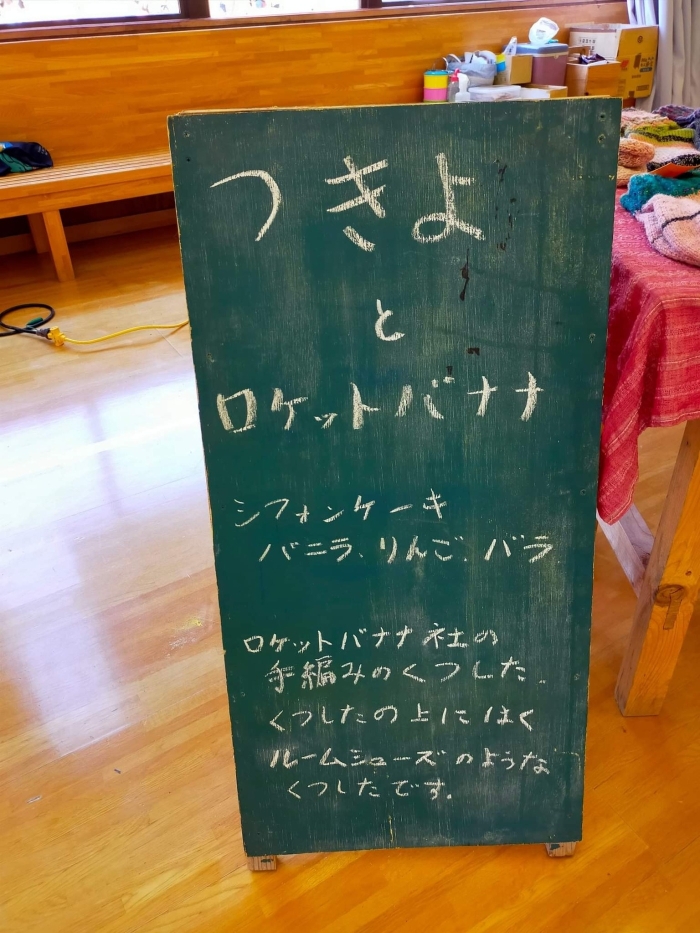 つきよ
と
ロケットバナナ
シフォンケーキ
バニラ、りんご、バラ
ロケットバナナ社の
手編みのくつした。
くつしたの上にはく
ルームシューズのような
くつしたです。